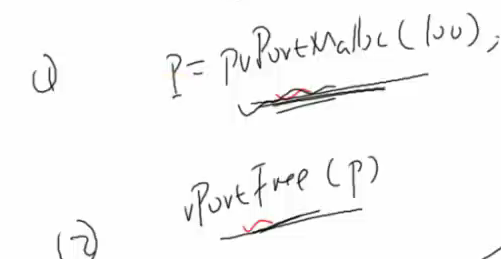 (1) P = pvPortMalloc(100);
vPortFree(P)
(2)